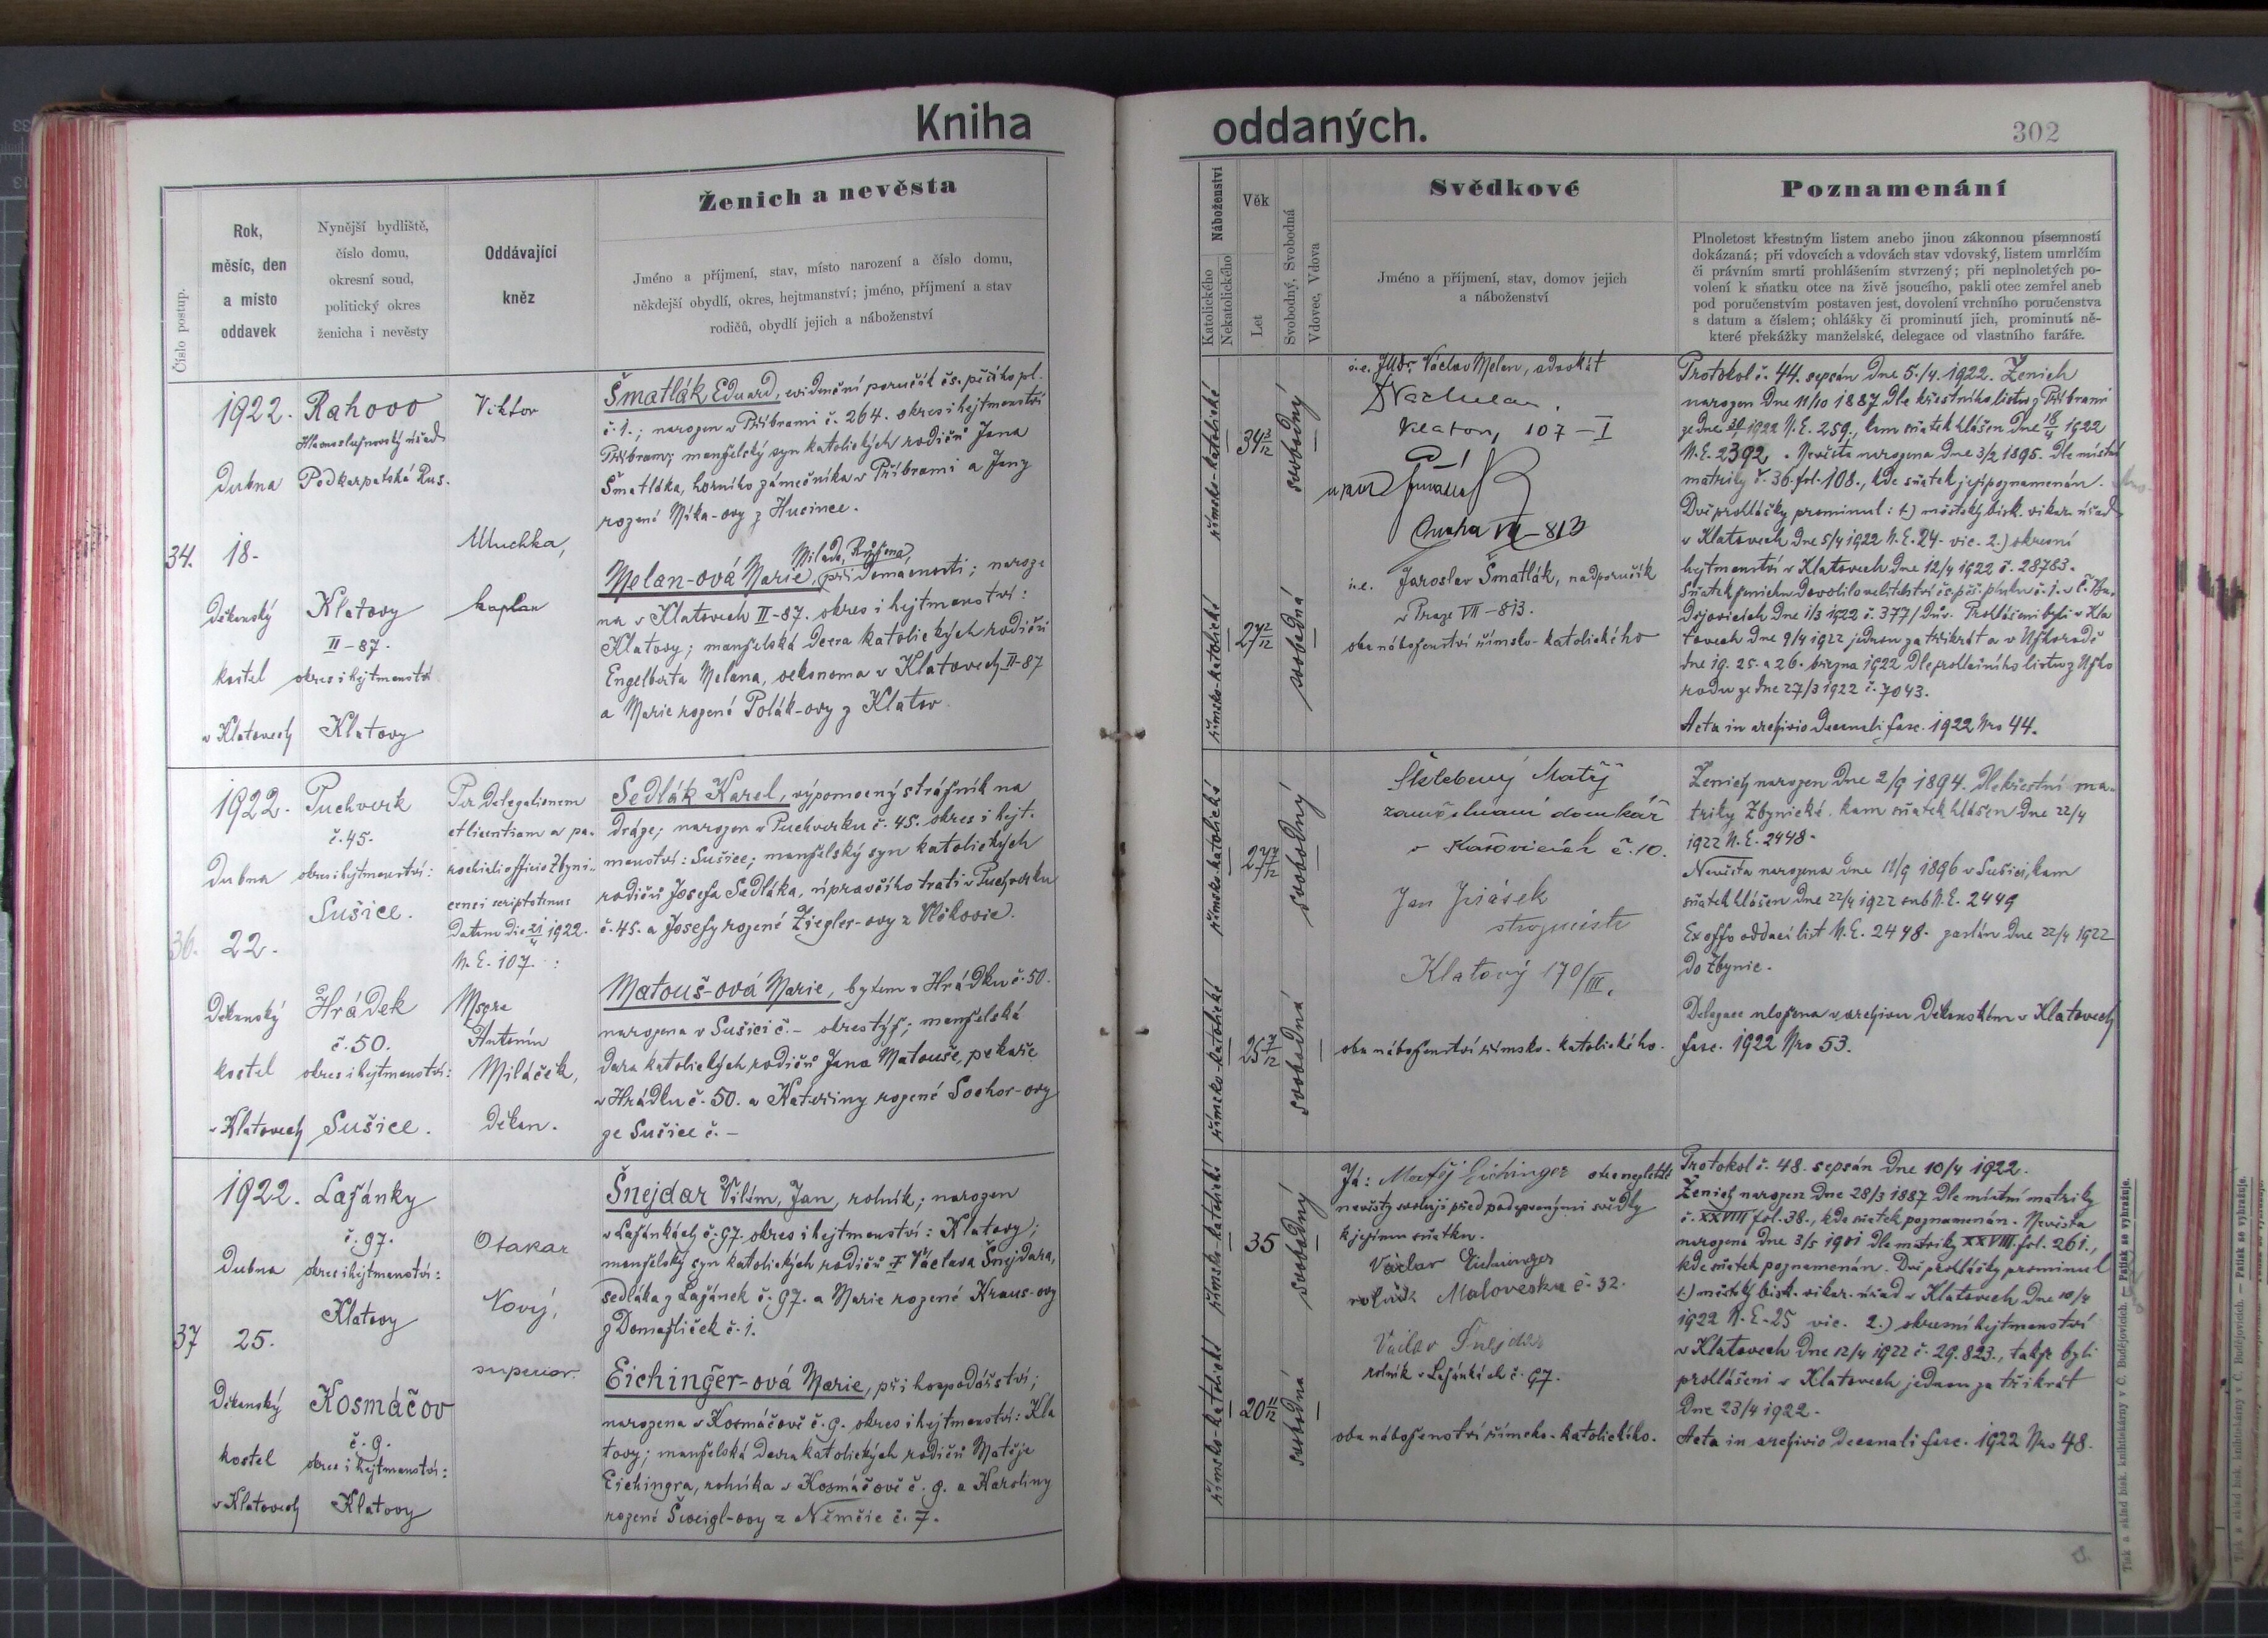 Kniha
oddaných.
302
Číslo postup.
Rok,
měsíc, den
a místo
oddavek
Nynější bydliště,
číslo domu,
okresní soud,
politický okres
ženicha i nevěsty
Oddávající
kněz
Ženich a nevěsta
Jméno a příjmení, stav, místo narození a číslo domu,
někdejší obydlí, okres, hejtmanství; jméno, příjmení a stav
rodičů, obydlí jejich a náboženství
Náboženství
Katolického
Nekatolického
Věk
Let
Svobodný, Svobodná
Vdovec, Vdova
Svědkové
Jméno a příjmení, stav, domov jejich
a náboženství
Poznamenání
Plnoletost křestným listem anebo jinou zákonnou písemností
dokázaná; při vdovcích a vdovách stav vdovský, listem umrlčím
či právním smrti prohlášením stvrzený; při neplnoletých po-
volení k sňatku otce na živě jsoucího, pakli otec zemřel aneb
pod poručenstvím postaven jest, dovolení vrchního poručenstva
s datum a číslem; ohlášky či prominutí jich, prominutí ně-
které překážky manželské, delegace od vlastního faráře.
34.
1922.
dubna
18.
Děkanský
kostel
v Klatovech
Rahovo
Podkarpatská Rus.
Klatovy
II-87.
okres i hejtmanství
Klatovy
Viktor
Muchka,
kaplan
Šmatlák Eduard, evidenční poručík čs. pěšího pl.
č. 1.; narozen v Příbrami č. 264. okres i hejtmanství
Příbram; manželský syn katolických rodičů Jana
Šmatláka, horního zámečníka v Příbrami a Jany
rozené Míka-ovy z Husince.
Milada, Růžena,
Melan-ová Marie, při domácnosti; naroze
na v Klatovech II-87. okres i hejtmanství:
Klatovy; manželská dcera katolických rodičů
Engelberta Melana, oekonoma v Klatovech II-87
a Marie rozené Polák-ovy z Klatov.
římsko-katolické
34 2/12
svobodný
římsko-katolické
27 2/12
svobodná
i.e. JUDr. Václav Melan, advokát
Klatovy, 107-I
Praha VII-813
i.e. Jaroslav Šmatlák, nadporučík
v Praze VII-813.
oba náboženství římsko-katolického
Protokol č. 44. sepsán dne 5./4. 1922. Ženich
narozen dne 11/10 1887 dle křestního listu z Příbrami
ze dne 30/ 1922 N. E. 259., kam sňatek hlášen dne 18/4 1922
N. E. 2392. Nevěsta narozena dne 3/2 1895. dle místní
matriky č. 36. fol. 108., kde sňatek její poznamenán.
Dvě prohlášky prominul: 1.) městský bisk. vikar. úřad
v Klatovech dne 5/4 1922 N. E. 24. vic. 2.) okresní
hejtmanství v Klatovech dne 12/4 1922 č. 28783.
Sňatek ženichu dovolilo velitelství čs. pěš. pluku č. 1. v Č. Bu-
dějovicích dne 1/3 1922 č. 377/dův. Prohlášeni byli v Kla
tovech dne 9/4 1922 jednou za třikrát a v Užhorodě
dne 19. 25. a 26. března 1922 dle prohlašního listu z Užho
rodu ze dne 27/3 1922 č. 7043.
Acta in archivio decanali fasc. 1922 Nro 44.
36.
1922.
dubna
22.
Děkanský
kostel
v Klatovech
Puchverk
č. 45.
okres i hejtmanství:
Sušice.
Hrádek
č. 50.
okres i hejtmanství:
Sušice.
Per delegationem
et licentiam a pa-
rochiali officio Zbyni-
censi scriptotenus
datam die 21/4 1922.
N. E. 107.
Msgre
Antonín
Miláček,
děkan.
Sedlák Karel, výpomocný strážník na
dráze; narozen v Puchverku č. 45. okres i hejt-
manství: Sušice; manželský syn katolických
rodičů Josefa Sedláka, úpravčího trati v Puchverku
č. 45. a Josefy rozené Ziegler-ovy z Vlčkovic.
Matouš-ová Marie, bytem v Hrádku č. 50.
narozena v Sušici č. - okres týž; manželská
dcera katolických rodičů Jana Matouše, pekaře
v Hrádku č. 50. a Kateřiny rozené Sochor-ovy
ze Sušice č. -
římsko-katolické
27 7/12
svobodný
římsko-katolické
25 7/12
svobodná
Matěj
domkář
č. 10.
Jan Jirásek
strojmistr
Klatový 170/III.
oba náboženství římsko-katolického.
Ženich narozen dne 2/9 1894. dle křestní ma-
triky Zbynické, kam sňatek hlášen dne 22/4
1922 N. E. 2448.
Nevěsta narozena dne 11/9 1896 v Sušici, kam
sňatek hlášen dne 22/4 1922 sub N. E. 2449
Ex offo oddací list N. E. 2448. zaslán dne 22/4 1922
do Zbynic.
Delegace uložena v archivu děkanském v Klatovech
fasc. 1922 Nro 53.
37
1922.
dubna
25.
Děkanský
kostel
v Klatovech
Lažánky
č. 97.
okres i hejtmanství:
Klatovy
Kosmáčov
č. 9.
okres i hejtmanství:
Klatovy
Otakar
Nový,
superior.
Šnejdar Vilém, Jan, rolník; narozen
v Lažánkách č. 97. okres i hejtmanství: Klatovy;
manželský syn katolických rodičů † Václava Šnejdara,
sedláka z Lažánek č. 97. a Marie rozené Kraus-ovy
z Domažliček č. 1.
Eichinger-ová Marie, při hospodářství;
narozena v Kosmáčově č. 9. okres i hejtmanství: Kla
tovy; manželská dcera katolických rodičů Matěje
Eichingra, rolníka v Kosmáčově č. 9. a Karoliny
rozené Šweigl-ovy z Němčic č. 7.
římsko-katolické
35
svobodný
římsko-katolické
20 11/12
svobodná
Já: Matěj Eichinger otec nezletilé
nevěsty svoluji před podepsanými svědky
k jejímu sňatku.
Václav Eichinger
rolník Maloveska č. 32.
Václav Šnejdar
rolník v Lažánkách č. 97.
oba náboženství římsko-katolického.
Protokol č. 48. sepsán dne 10/4 1922.
Ženich narozen dne 28/3 1887 dle místní matriky
č. XXVIII fol. 38., kde sňatek poznamenán. Nevěsta
narozena dne 3/5 1901 dle matriky XXVIII. fol. 261.,
kde sňatek poznamenán. Dvě prohlášky prominul
1.) městský bisk. vikar. úřad v Klatovech dne 10/4
1922 N. E. 25 vic. 2.) okresní hejtmanství
v Klatovech dne 12/4 1922 č. 29.823., takže byli
prohlášeni v Klatovech jednou za třikrát
dne 23/4 1922.
Acta in archivio decanali fasc. 1922 Nro 48.
Tisk a sklad bisk. knihtiskárny v Č. Budějovicích. — Patisk se vyhražuje.